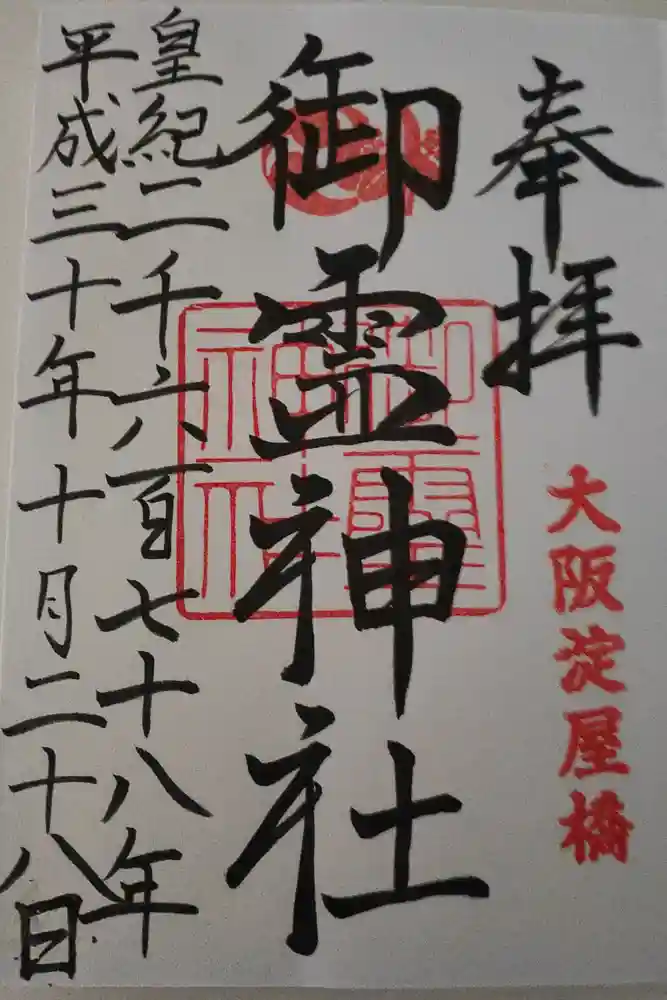 奉拝
大阪淀屋橋
御霊神社
御霊神社
皇紀二千六百七十八年
平成三十年十月二十八日